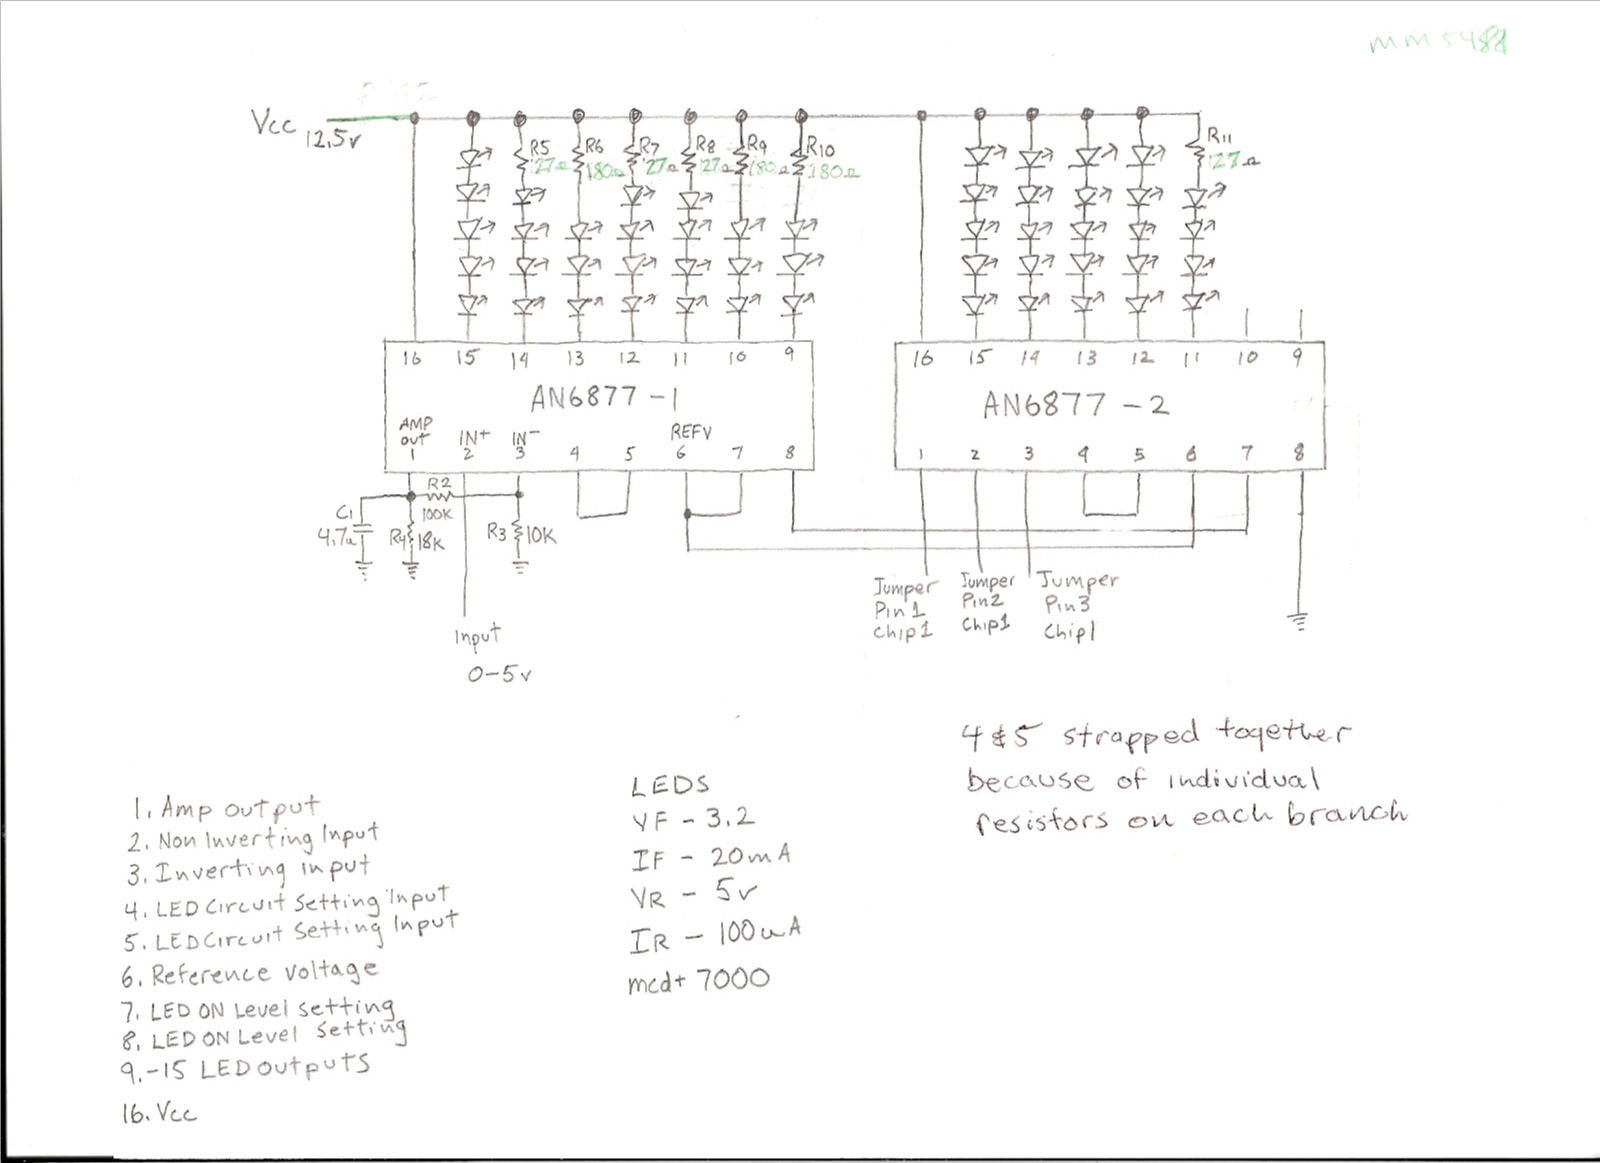 MM5488
Vcc 12.5v
R5 R6 R7 R8 R9 R10 R11
27Ω 180Ω 27Ω 27Ω 180Ω 180Ω 27Ω
16 15 14 13 12 11 10 9
16 15 14 13 12 11 10 9
AN6877-1
AN6877-2
AMP out
IN+ IN- REFV
1 2 3 4 5 6 7 8
1 2 3 4 5 6 7 8
R2
100K
C1
4.7u
R4 18K
R3 10K
Jumper Pin1 Chip1
Jumper Pin2 Chip1
Jumper Pin3 Chip1
Input
0-5v
4&5 strapped together
because of individual
resistors on each branch
1. Amp output
2. Non Inverting Input
3. Inverting input
4. LED Circuit Setting Input
5. LED Circuit Setting Input
6. Reference voltage
7. LED ON Level setting
8. LED ON Level Setting
9.-15 LED outputs
16. Vcc
LEDS
VF - 3.2
IF - 20mA
VR - 5v
IR - 100uA
mcd+ 7000